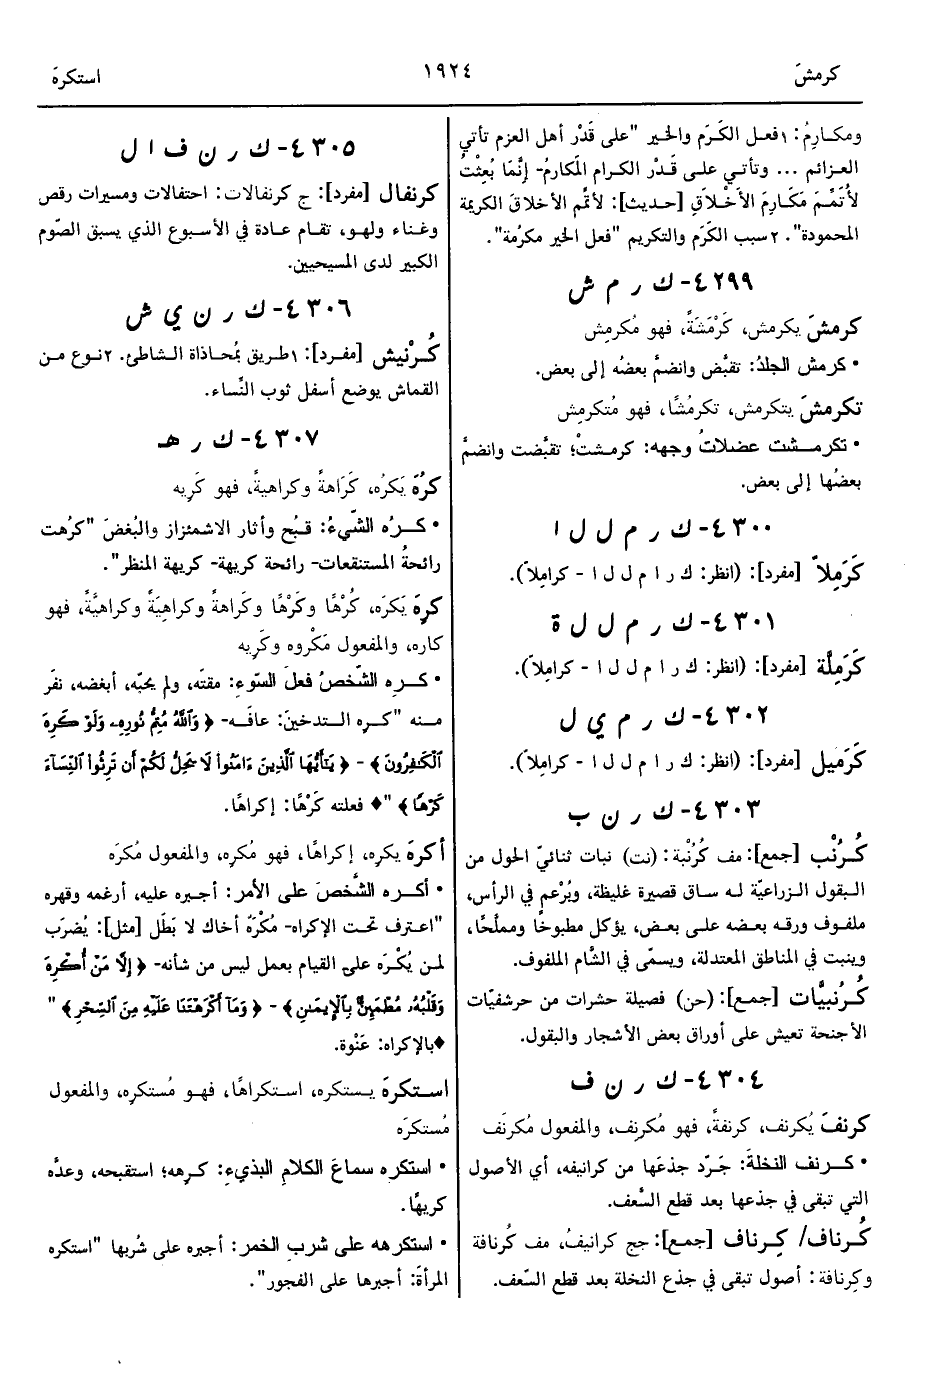 كرمشَ
١٩٢٤
استكرهَ
ومكارِمُ: ١فعل الكَرَم والخير "على قَدْر أهل العزم تأتي
العزائم ... وتأتي على قَدْر الكرام المَكارمُ- إِنَّمَا بُعِثْتُ
لأُتَمِّمَ مَكَارِمَ الأَخْلاَقِ [حديث]: لأتمِّم الأخلاقَ الكريمة
المحمودة". ٢سبب الكَرَم والتكريم "فعل الخير مكرُمة".
٤٢٩٩- ك ر م ش
كرمشَ يكرمش، كَرْمَشَةً، فهو مُكرمِش
• كرمش الجلدُ: تقبَّض وانضمَّ بعضُه إلى بعض.
تكرمشَ يتكرمش، تكرمُشًا، فهو مُتكرمِش
• تكرمـشت عضلاتُ وجهه: كرمشتْ؛ تقبَّضت وانضمَّ
بعضُها إلى بعض.
٤٣٠٠- ك ر م ل ل ا
كَرَملاّ [مفرد]: (انظر: ك ر ا م ل ل ا - كراملاّ).
٤٣٠١- ك ر م ل ل ة
كَرَمِلَّة [مفرد]: (انظر: ك ر ا م ل ل ا - كراملاّ).
٤٣٠٢- ك ر م ي ل
كَرَميل [مفرد]: (انظر: ك ر ا م ل ل ا - كراملاّ).
٤٣٠٣- ك ر ن ب
كُرُنْب [جمع]: مف كُرُنْبة: (نت) نبات ثنائيّ الحول من
البقول الزراعيّة لـه ساق قصيرة غليظة، وبُرْعم في الرأس،
ملفوف ورقه بعضه على بعض، يؤكل مطبوخًا ومملّحًا،
وينبت في المناطق المعتدلة، ويسمّى في الشَّام الملفوف.
كُرُنْبيَّات [جمع]: (حن) فصيلة حشرات من حرشفيّات
الأجنحة تعيش على أوراق بعض الأشجار والبقول.
٤٣٠٤- ك ر ن ف
كرنفَ يُكرنف، كرنفةً، فهو مُكرنِف، والمفعول مُكرنَف
• كـرنف النخلةَ: جَرّد جذعَها من كرانيفه، أي الأصول
التي تبقى في جذعها بعد قطع السَّعف.
كُرناف/ كِرناف [جمع]: جج كرانيفُ، مف كُرنافة
وكِرنافة: أصول تبقى في جذع النخلة بعد قطع السّعف.
٤٣٠٥- ك ر ن ف ا ل
كرنفال [مفرد]: ج كرنفالات: احتفالات ومسيرات رقص
وغناء ولهو، تقام عادة في الأسبوع الذي يسبق الصّوم
الكبير لدى المسيحيين.
٤٣٠٦- ك ر ن ي ش
كُرْنيش [مفرد]: ١طريق بمُحاذاة الشاطئ. ٢نوع من
القماش يوضع أسفل ثوب النِّساء.
٤٣٠٧- ك ر هـ
كرُهَ يَكرُه، كَرَاهةً وكراهيةً، فهو كَرِيه
• كـرُه الشَّيءُ: قبُح وأثار الاشمئزاز والبُغضَ "كرُهت
رائحةُ المستنقعات- رائحة كريهة- كريهة المنظر".
كرِهَ يَكرَه، كُرْهًا وكَرْهًا وكَراهةً وكراهِيَةً وكراهيَّةً، فهو
كاره، والمفعول مَكْروه وكَرِيه
• كـره الشّخصُ فعلَ السّوء: مقتَه، ولم يحبّه، أبغضه، نفَر
منه "كره التدخينَ: عافَه- ﴿ وَٱللَّهُ مُتِمُّ نُورِهِۦ وَلَوْ كَرِهَ
ٱلْكَٰفِرُونَ ﴾ - ﴿ يَٰٓأَيُّهَا ٱلَّذِينَ ءَامَنُوا لَا يَحِلُّ لَكُمْ أَن تَرِثُوا ٱلنِّسَآءَ
كَرْهًا ﴾ "♦ فعلته كَرْهًا: إكراهًا.
أكرهَ يكرِه، إكراهًا، فهو مُكرِه، والمفعول مُكرَه
• أكـره الشَّخصَ على الأمر: أجبره عليه، أرغمه وقهره
"اعترف تحت الإكراه- مُكْرَهٌ أخاك لا بَطَل [مثل]: يُضرَب
لمـن يُكْرَه على القيام بعمل ليس من شأنه- ﴿ إِلَّا مَنْ أُكْرِهَ
وَقَلْبُهُۥ مُطْمَئِنٌّۢ بِٱلْإِيمَٰنِ ﴾ - ﴿ وَمَآ أَكْرَهْتَنَا عَلَيْهِ مِنَ ٱلسِّحْرِ ﴾ "
♦بالإكراه: عَنْوة.
اسـتكرهَ يـستكره، استكراهًا، فهو مُستكرِه، والمفعول
مُستكرَه
• استكره سماعَ الكلام البذيء: كـرهه؛ استقبحه، وعدَّه
كريهًا.
• استكرهه على شرب الخمر: أجبره على شُربها "استكره
المرأةَ: أجبرها على الفجور".